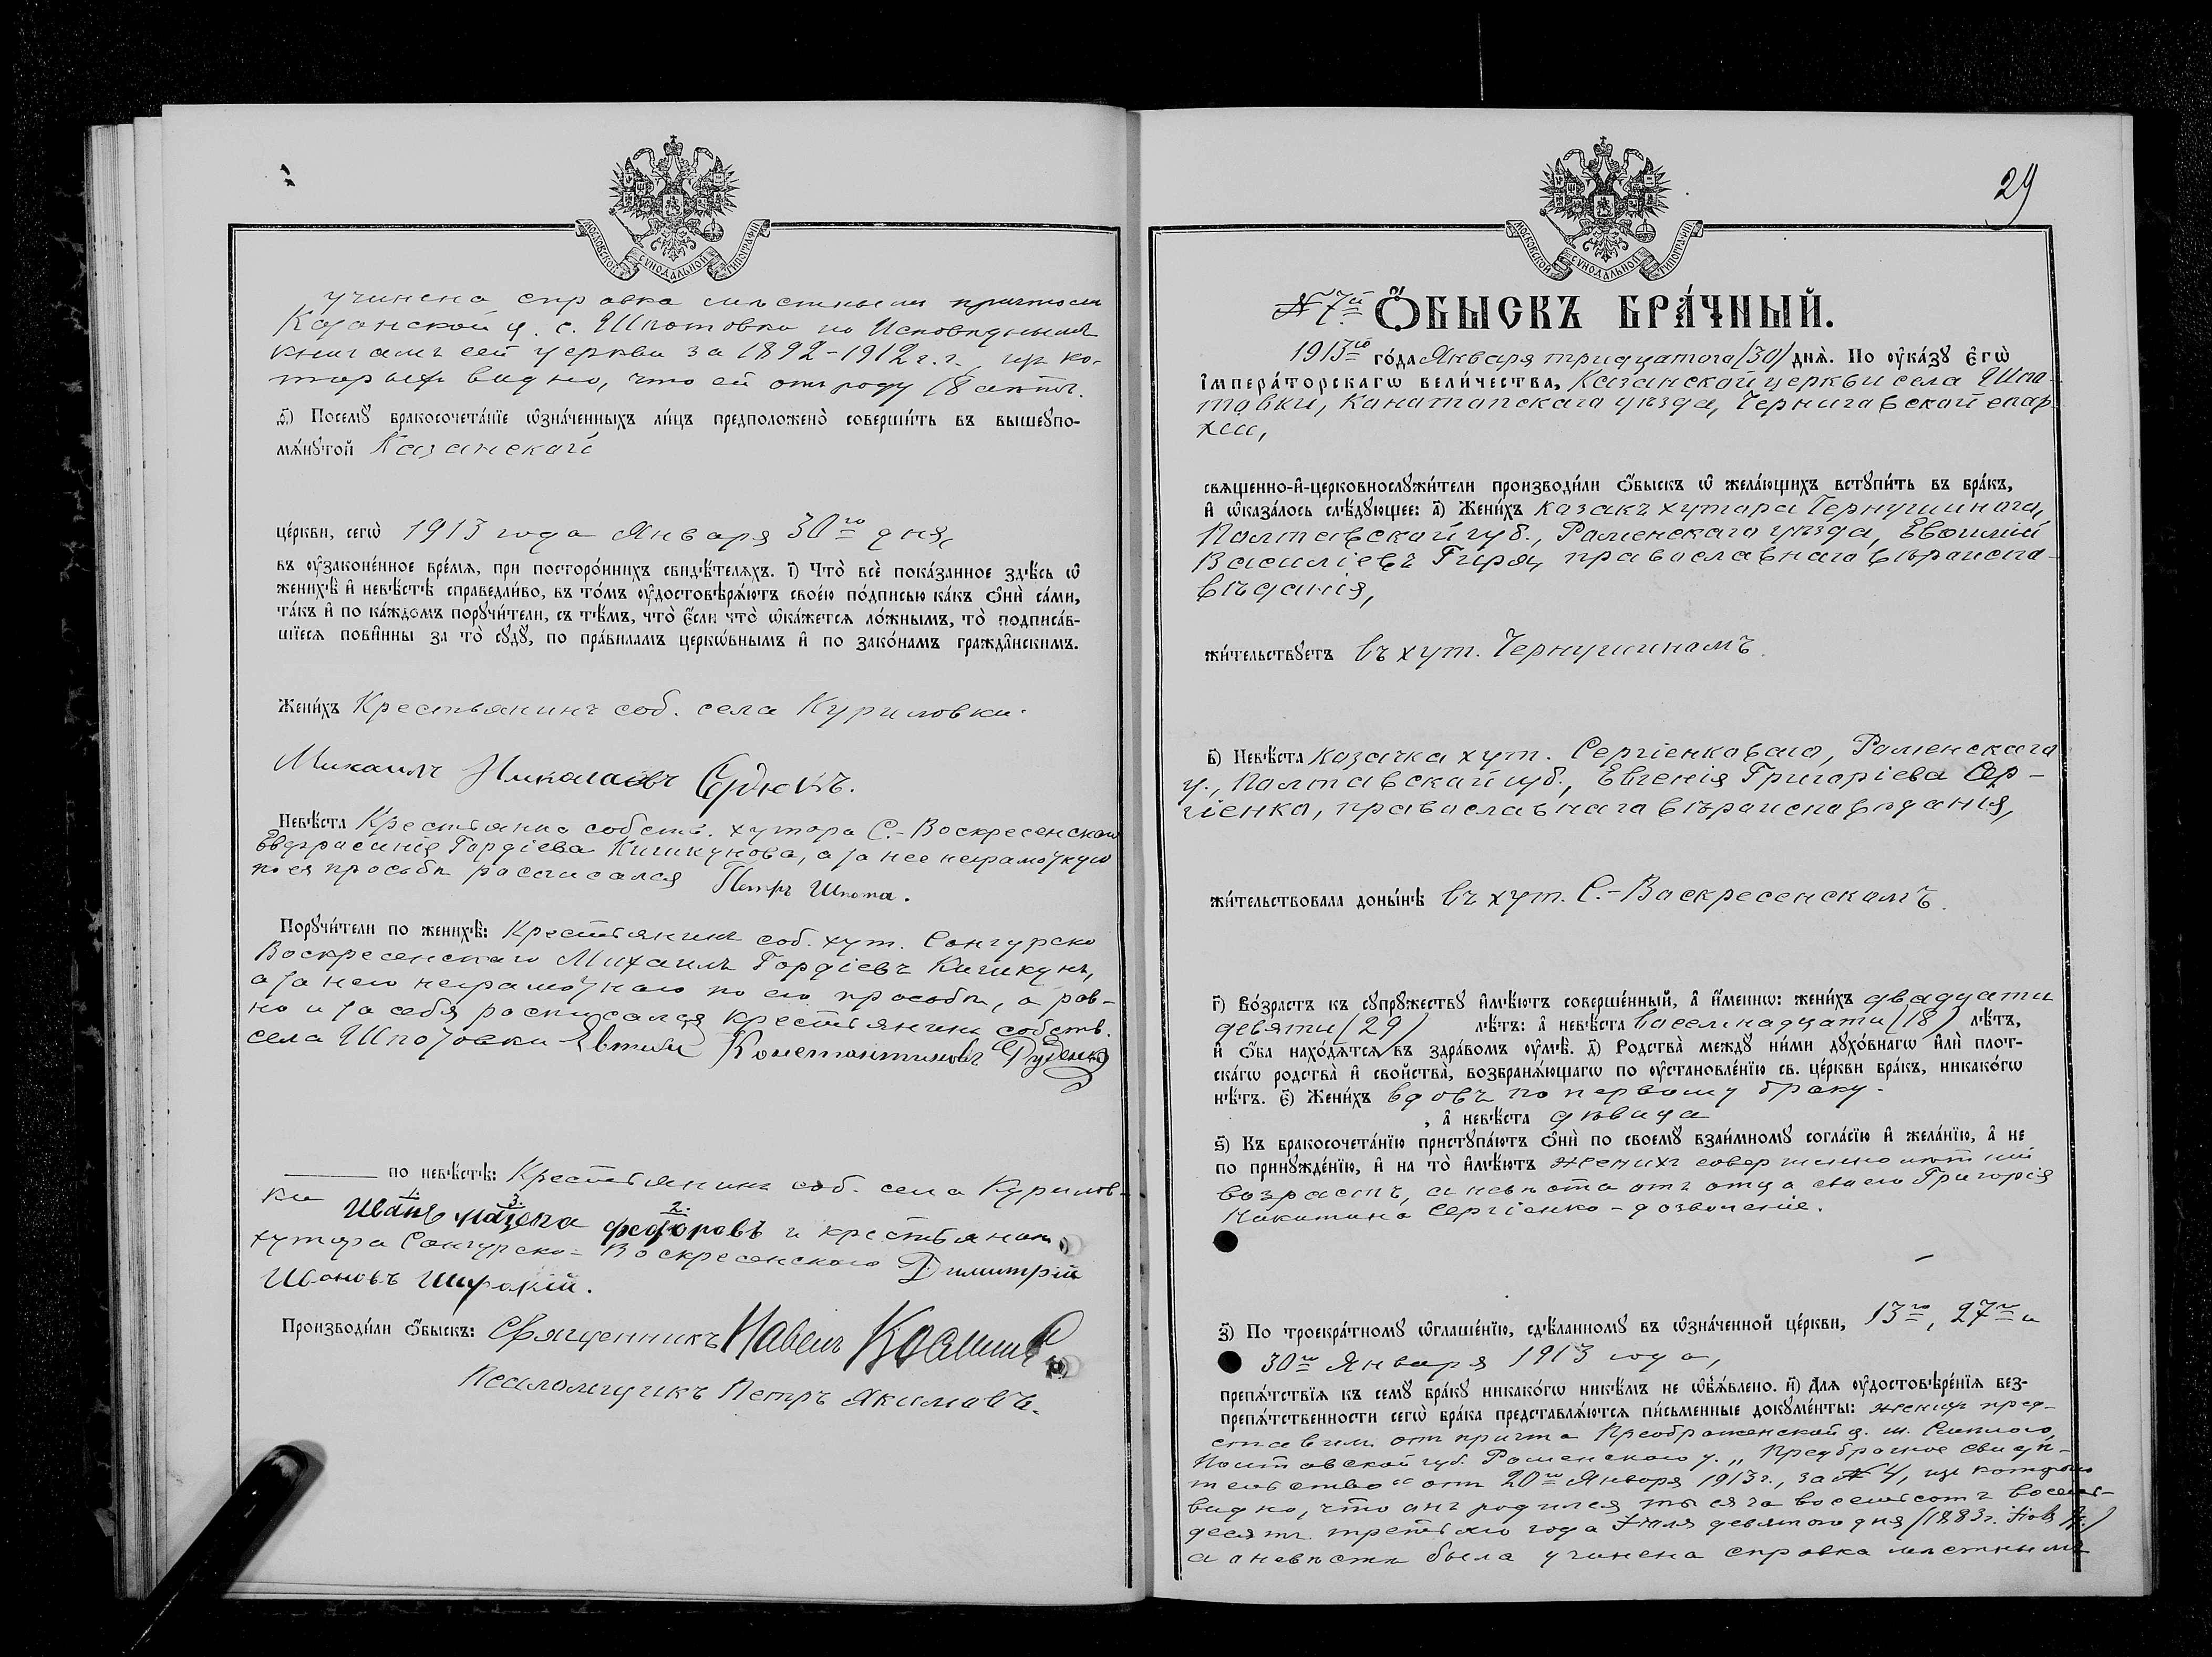 МОСКОВСКОЙ СѴНОДАЛЬНОЙ ТИПОГРАФІИ
учинена справка мѣстнымъ причтомъ
Казанской ц. с. Шпотовки по Исповѣднымъ
книгамъ сей церкви за 1892-1912 г.г., изъ ко-
торыхъ видно, что ей отъ роду 18 лѣтъ.
Посемꙋ̀ бракосочета́нїе ѡ҆зна́ченныхъ ли́цъ предположено̀ соверши́ть въ вышеꙋпо-
мѧ́нꙋтой Казанской
це́ркви, сегѡ̀ 1913 года Января 30го дня,
въ ᲂу҆законе́нное вре́мѧ, при посторо́ннихъ свидѣ́телѧхъ. і҃) Что̀ всѐ пока́занное здѣ́сь ѡ҆
женихѣ̀ и҆ невѣ́стѣ справедли́во, въ то́мъ ᲂу҆достовѣрѧ́ютъ свое́ю по́дписью ка́къ ѻ҆нѝ са́ми,
та́къ и҆ по ка́ждомъ порꙋчи́тели, съ тѣ́мъ, что̀ є҆́сли что̀ ѡ҆ка́жетсѧ ло́жнымъ, то̀ подписа́в-
шїесѧ пови́нны за то̀ сꙋдꙋ̀, по пра́виламъ церкѡ́внымъ и҆ по зако́намъ гражда́нскимъ.
Жени́хъ Крестьянинъ соб. села Куриловки.
Михаилъ Николаевъ Сердюкъ.
Невѣ́ста Крестьянка собств. хутора С.-Воскресенскаго
Евфросинія Гордіева Кишкунова, а за нее неграмотную
по ея просьбѣ росписался Петръ Шпота.
Порꙋчи́тели по женихѣ̀: Крестьянинъ соб. хут. Сонгурско
Воскресенскаго Михаилъ Гордіевъ Кишкунъ,
а за него неграмотнаго по его просьбѣ, а рав-
но и за себя росписался крестьянинъ собств.
села Шпотовки Евтихій Константиновъ Руденко
по невѣ́стѣ: Крестьянинъ соб. села Курилов-
1. 3. 2.
ки Иванъ Мазепа Федоровъ и крестьянинъ
хутора Сонгурско-Воскресенскаго Димитрій
Ивановъ Широкій.
Производи́ли ѻ҆́быскъ: Священникъ Павелъ
Псаломщикъ Петръ Якимовъ.
29
МОСКОВСКОЙ СѴНОДАЛЬНОЙ ТИПОГРАФІИ
№ 7й Ѻ҆́БЫСКЪ БРА́ЧНЫЙ.
1913го го́да Января тридцатого /30/ днѧ̀. По ᲂу҆ка́зꙋ Є҆гѡ̀
І҆мпера́торскагѡ вели́чества, Казанской церкви села Шпо-
товки, Конотопскаго уѣзда, Черниговской епар-
хіи,
свѧщенно-и҆-церковнослꙋжи́тели производи́ли ѻ҆́быскъ ѡ҆ жела́ющихъ встꙋпи́ть въ бра́къ,
и҆ ѡ҆каза́лось слѣ́дꙋющее: а҃) Жени́хъ козакъ хутора Чернушиного,
Полтавской губ., Роменскаго уѣзда, Евѳимій
Василіевъ Гиря, православнаго вѣроиспо-
вѣданія,
жи́тельствꙋетъ въ хут. Чернушиномъ.
в҃) Невѣ́ста козачка хут. Сергіенковаго, Роменскаго
у., Полтавской губ., Евгенія Григоріева Сер-
гіенко, православнаго вѣроисповѣданія,
жи́тельствовала доны́нѣ въ хут. С.-Воскресенскомъ.
г҃) Во́зрастъ къ сꙋпрꙋ́жествꙋ и҆мѣ́ютъ соверше́нный, а҆ и҆́меннѡ: жени́хъ двадцати
девяти /29/ лѣ́тъ: а҆ невѣ́ста восемнадцати /18/ лѣ́тъ,
и҆ ѻ҆́ба нахо́дѧтсѧ въ здра́вомъ ᲂу҆мѣ̀. д҃) Родства̀ междꙋ ни́ми дꙋхо́внагѡ и҆лѝ плот-
ска́гѡ родства̀ и҆ свойства̀, возбранѧ́ющагѡ по ᲂу҆становле́нїю св. це́ркви бра́къ, никако́гѡ
нѣ́тъ. є҃) Жени́хъ вдовъ по первому браку.
, а҆ невѣ́ста дѣвица
ѕ҃) Къ бракосочета́нїю пристꙋпа́ютъ ѻ҆нѝ по своемꙋ̀ взаи́мномꙋ согла́сїю и҆ жела́нїю, а҆ не
по принꙋжде́нїю, и҆ на то̀ и҆мѣ́ютъ женихъ совершеннолѣтній
возрастъ, а невѣста отъ отца своего Григорія
Никитина Сергіенко - дозволеніе.
з҃) По троекра́тномꙋ ѡ҆глаше́нїю, сдѣ́ланномꙋ въ ѡ҆зна́ченной це́ркви, 13го, 27го и
30го Января 1913 года,
препѧ́тствїѧ къ семꙋ̀ бра́кꙋ никако́гѡ никѣ́мъ не ѡ҆б̾ѧ́влено. и҃) Длѧ ᲂу҆достовѣре́нїѧ без-
препѧ́тственности сегѡ̀ бра́ка представлѧ́ютсѧ пи́сьменные докꙋме́нты: женихъ пред-
ставилъ отъ причта Преображенской ц. м. Смѣлого,
Полтавской губ. Роменскаго у. „Предбрачное свидѣ-
тельство“ отъ 20го Января 1913 г., за № 4, изъ котораго
видно, что онъ родился тысяча восемьсотъ восемь-
десятъ третьяго года Іюля девятого дня /1883 г.
а о невѣстѣ была учинена справка мѣстнымъ